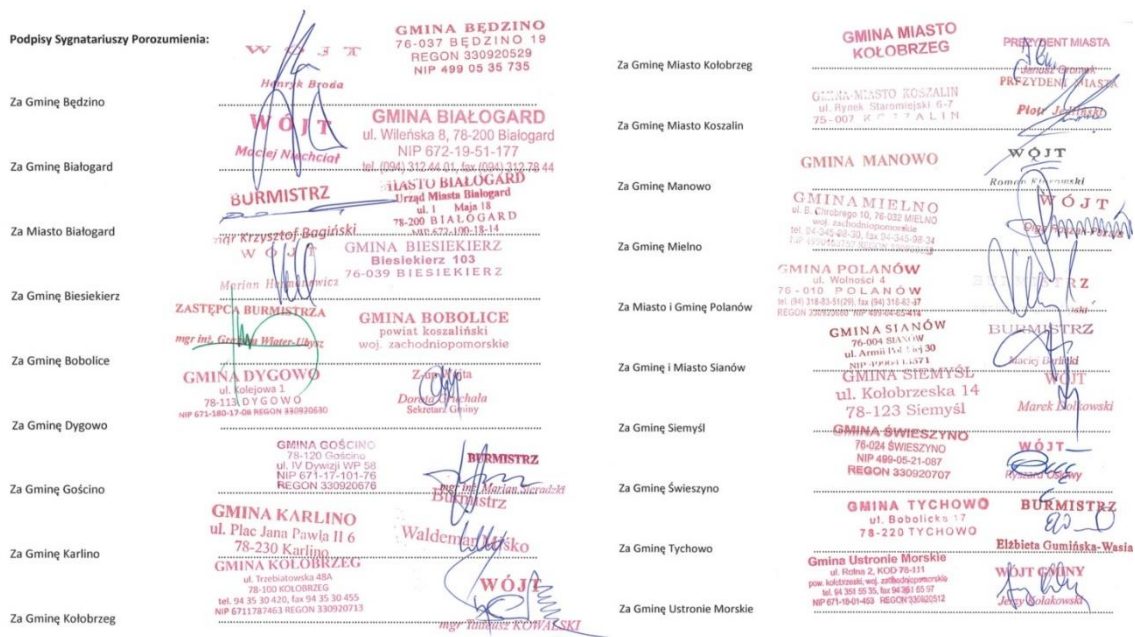 Podpisy Sygnatariuszy Porozumienia:
WÓJT
Henryk Broda
GMINA BĘDZINO
76-037 BĘDZINO 19
REGON 330920529
NIP 499 05 35 735
Za Gminę Będzino
WÓJT
Maciej Niechciał
GMINA BIAŁOGARD
ul. Wileńska 8, 78-200 Białogard
NIP 672-19-51-177
tel. (094) 312 44 01, fax (094) 312 78 44
Za Gminę Białogard
BURMISTRZ
mgr Krzysztof Bagiński
MIASTO BIAŁOGARD
Urząd Miasta Białogard
ul. 1 Maja 18
78-200 BIAŁOGARD
NIP 672-100-18-14
Za Miasto Białogard
WÓJT
Marian
GMINA BIESIEKIERZ
Biesiekierz 103
76-039 BIESIEKIERZ
Za Gminę Biesiekierz
ZASTĘPCA BURMISTRZA
mgr inż.
GMINA BOBOLICE
powiat koszaliński
woj. zachodniopomorskie
Za Gminę Bobolice
GMINA DYGOWO
ul. Kolejowa 1
78-113 DYGOWO
NIP 671-180-17-09 REGON 330920630
Z up. Wójta
Dorota Gruchała
Sekretarz Gminy
Za Gminę Dygowo
GMINA GOŚCINO
78-120 Gościno
ul. IV Dywizji WP 58
NIP 671-17-101-76
REGON 330920676
BURMISTRZ
mgr inż. Marian Sieradzki
Za Gminę Gościno
GMINA KARLINO
ul. Plac Jana Pawła II 6
78-230 Karlino
Burmistrz
Waldemar Miśko
Za Gminę Karlino
GMINA KOŁOBRZEG
ul. Trzebiatowska 48A
78-100 KOŁOBRZEG
tel. 94 35 30 420, fax 94 35 30 455
NIP 6711787463 REGON 330920713
WÓJT
mgr Tadeusz KOWALSKI
Za Gminę Kołobrzeg
GMINA MIASTO
KOŁOBRZEG
PREZYDENT MIASTA
Janusz Gromek
Za Gminę Miasto Kołobrzeg
GMINA-MIASTO KOSZALIN
ul. Rynek Staromiejski 6-7
75-007 KOSZALIN
PREZYDENT MIASTA
Piotr Jedliński
Za Gminę Miasto Koszalin
GMINA MANOWO
WÓJT
Roman Kłosowski
Za Gminę Manowo
GMINA MIELNO
ul. B. Chrobrego 10, 76-032 MIELNO
woj. zachodniopomorskie
tel. 94-345-98-30, fax 94-345-98-34
WÓJT
Olga
Za Gminę Mielno
GMINA POLANÓW
ul. Wolności 4
76-010 POLANÓW
REGON 330920660 NIP 499-04-65-414
BURMISTRZ
Za Miasto i Gminę Polanów
GMINA SIANÓW
76-004 SIANÓW
ul. Armii Polskiej 30
BURMISTRZ
Maciej Berlicki
Za Gminę i Miasto Sianów
GMINA SIEMYŚL
ul. Kołobrzeska 14
78-123 Siemyśl
WÓJT
Marek Dołkowski
Za Gminę Siemyśl
GMINA ŚWIESZYNO
76-024 ŚWIESZYNO
NIP 499-05-21-087
REGON 330920707
WÓJT
Ryszard Osiowy
Za Gminę Świeszyno
GMINA TYCHOWO
ul. Bobolicka 17
78-220 TYCHOWO
BURMISTRZ
Elżbieta Gumińska-Wasia
Za Gminę Tychowo
Gmina Ustronie Morskie
ul. Rolna 2, KOD 78-111
pow. kołobrzeski, woj. zachodniopomorskie
tel. 94 351 55 35, fax 94 351 55 97
NIP 671-18-01-453 REGON 330920512
WÓJT GMINY
Jerzy Kołakowski
Za Gminę Ustronie Morskie